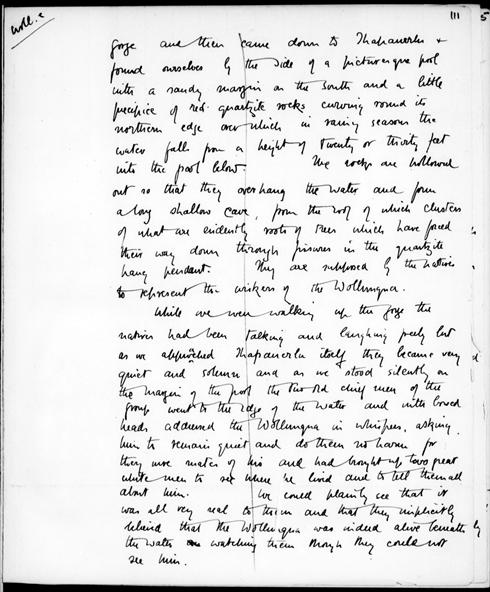 Woll. 2
111 5
gorge and then came down to Thapauerlu &
found ourselves by the side of a picturesque pool
with a sandy margin on the South and a little
precipice of red quartzite rocks curving round its
northern edge over which in rainy seasons the
water falls from a height of twenty or thirty feet
into the pool below. The rocks are hollowed
out so that they overhang the water and form
a long shallow cave, from the roof of which clusters
of what are evidently roots of trees which have forced
their way down through fissures in the quartzite
hang pendant. They are supposed by the natives
to represent the wiskers of the Wollunqua.
While we were walking up the gorge the
natives had been talking and laughing freely but
as we approached Thapauerlu itself they became very
quiet and solemn and as we stood silently on
the margin of the pool the two old chief men of the
group went to the edge of the water and with bowed
heads addressed the Wollunqua in whispers, asking
him to remain quiet and do them no harm for
they were mates of his and had brought up two great
white men to see where he lived and to tell them all
about him. We could plainly see that it
was all very real to them and that they implicitly
believed that the Wollunqua was indeed alive beneath
the water watching them though they could not
see him.